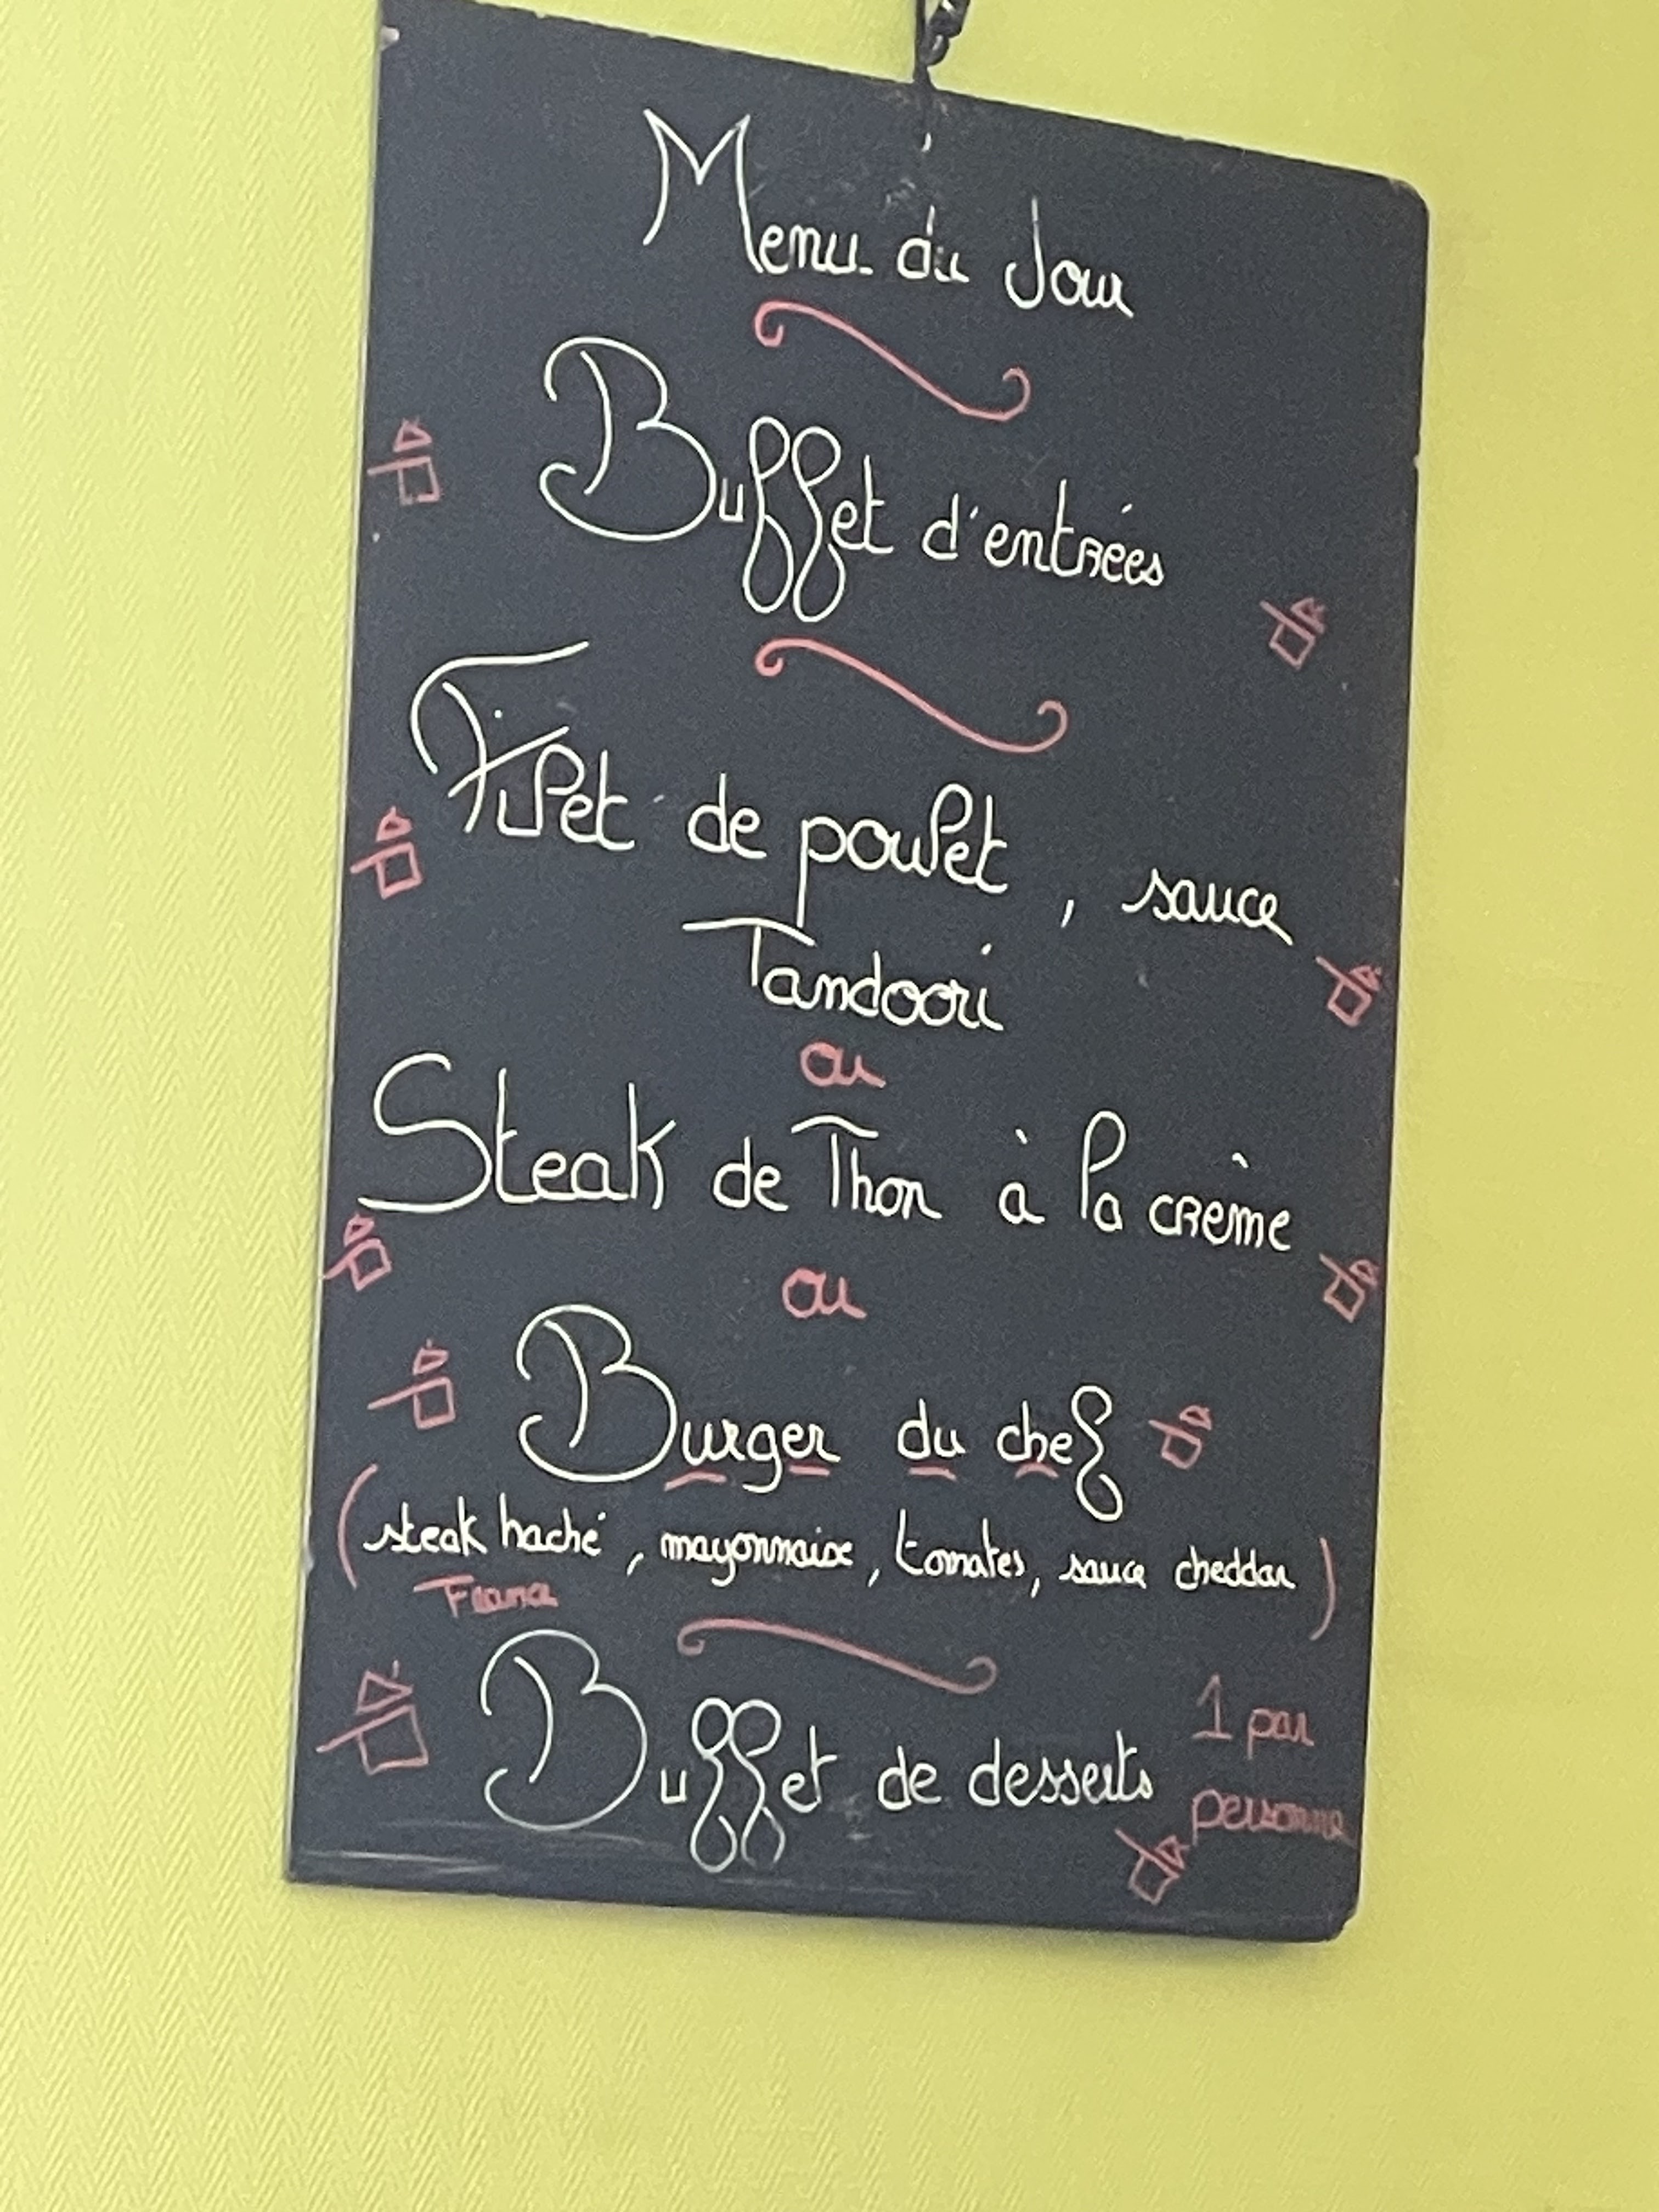 Menu du Jour
Buffet d'entrées
Filet de poulet, sauce
Tandoori
ou
Steak de Thon à la crème
ou
Burger du chef
(steak haché, mayonnaise, tomates, sauce cheddar)
France
Buffet de desserts 1 par
personne